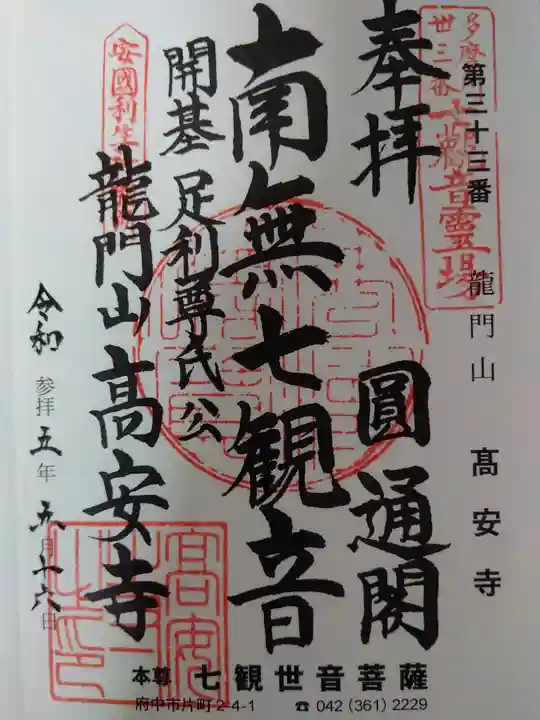 多摩
卅三番
観音霊場
第三十三番 龍門山 髙安寺
奉拝 圓通閣
南無七観音
開基 足利尊氏公
安國利生
龍門山高安寺
令和 参拝 五年 五月十六日
高安
本尊 七観世音菩薩
府中市片町2-4-1 ☎ 042(361)2229